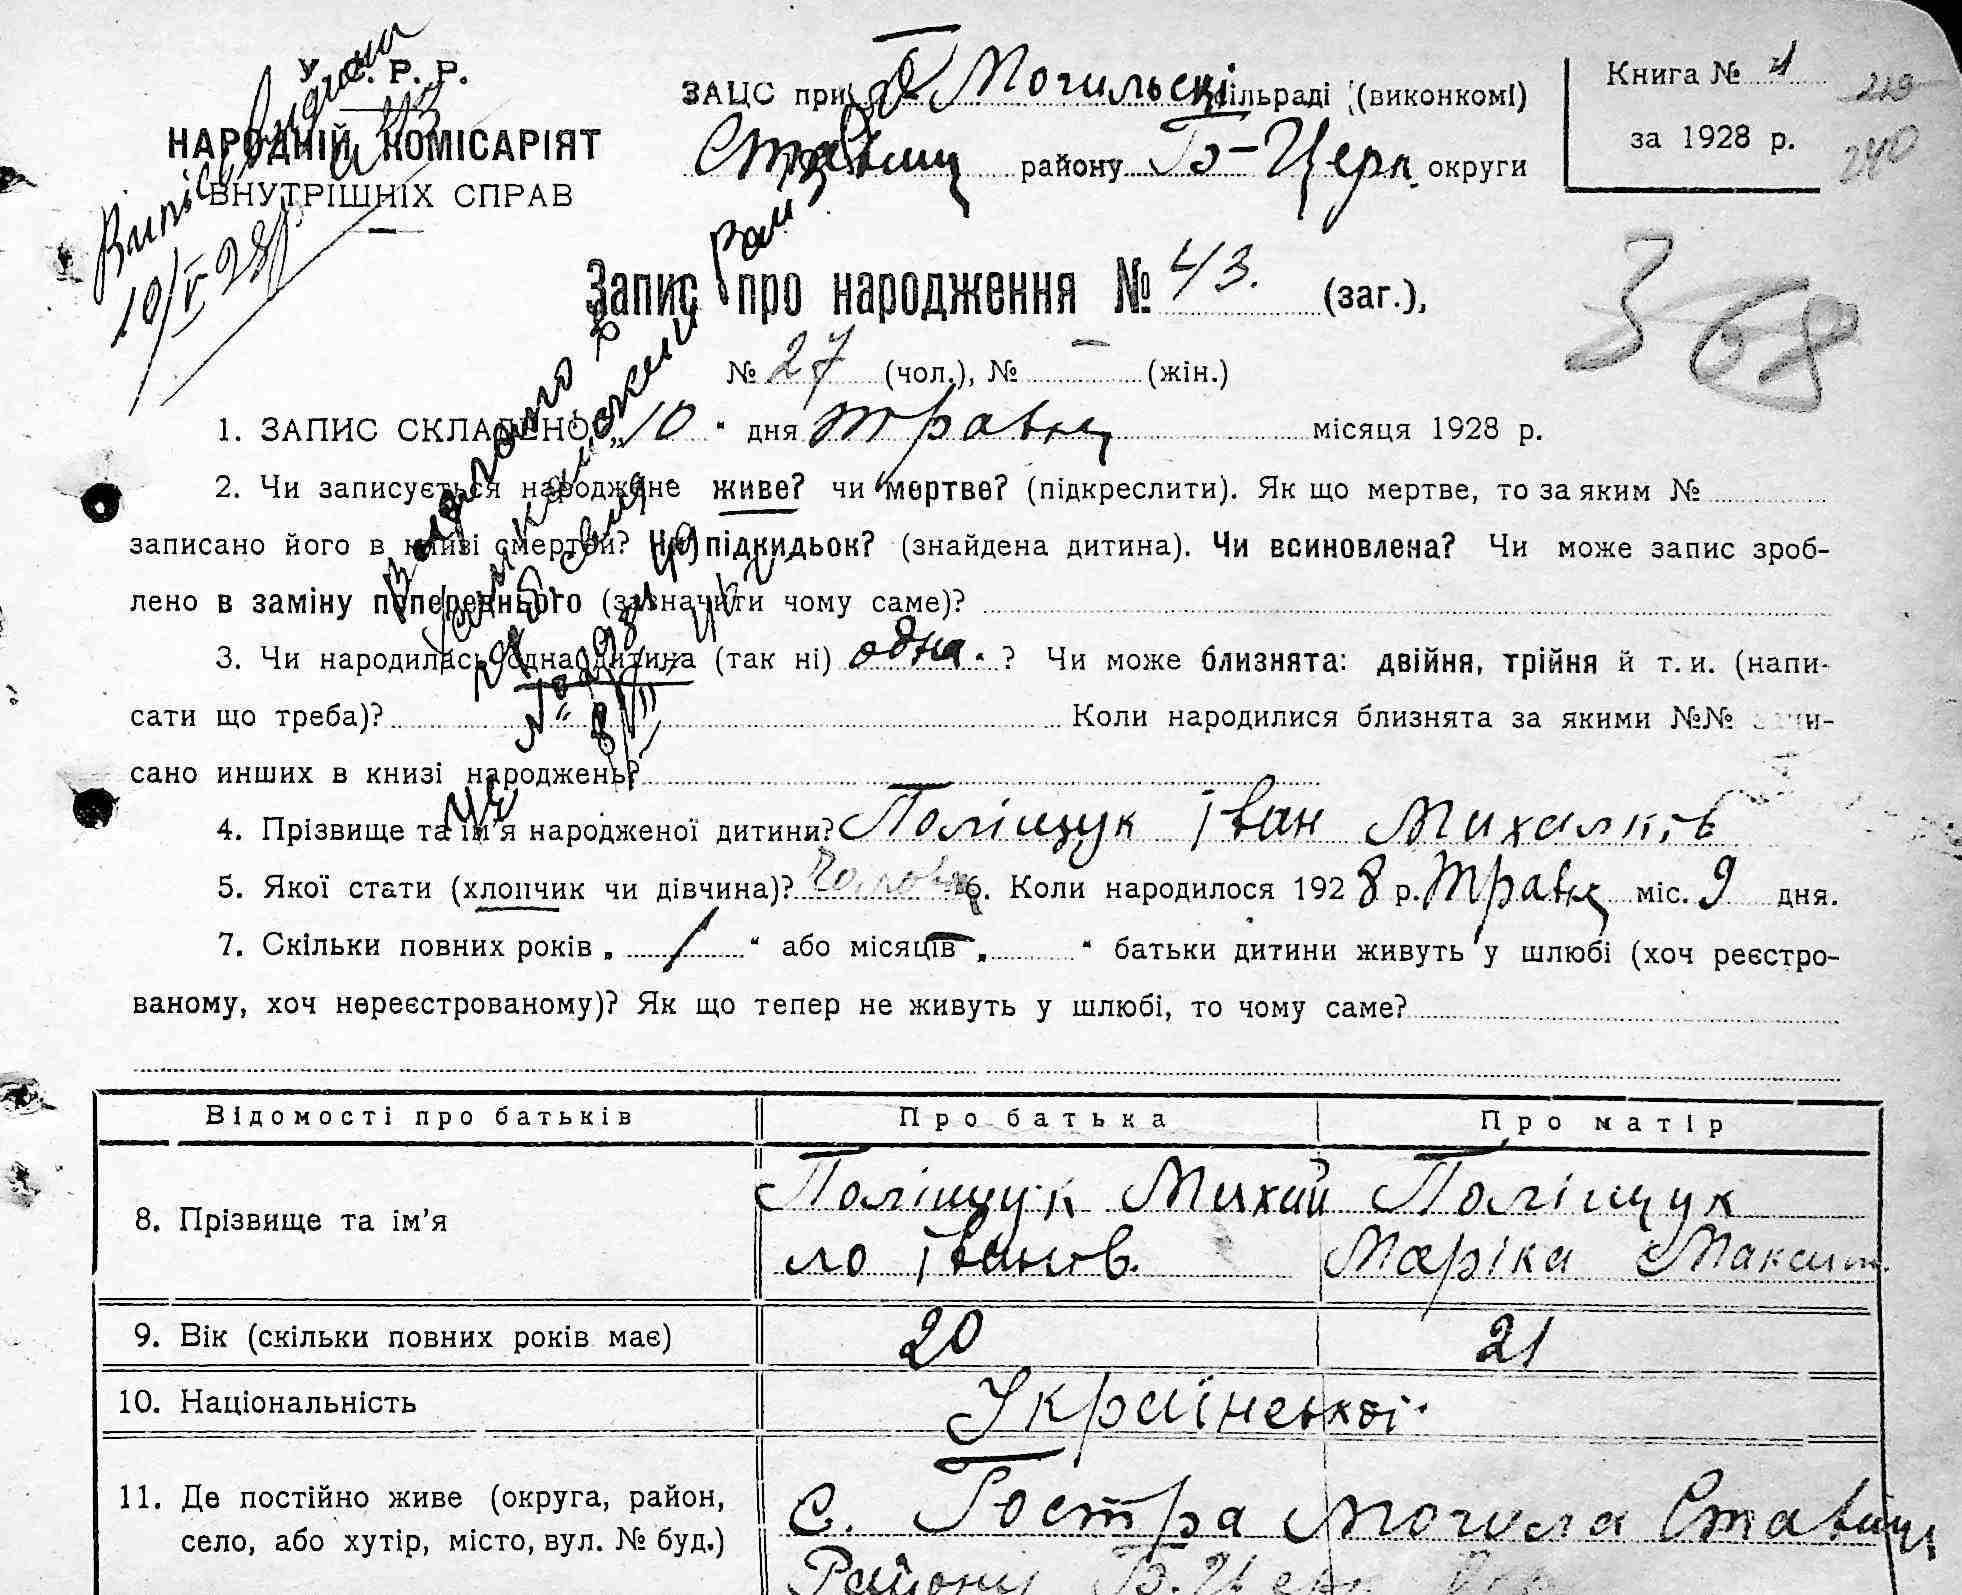 У. С. Р. Р.
НАРОДНІЙ КОМІСАРІЯТ
ВНУТРІШНІХ СПРАВ
Випись видана
10/V 28 р.
ЗАЦС при Г Могильскі сільраді (виконкомі)
Ставищ району Б-Церк. округи
Книга № 1
за 1928 р.
240
368
Запис про народження № 43. (заг.),
№ 27 (чол.), № — (жін.)
1. ЗАПИС СКЛАДЕНО „10" дня травня місяця 1928 р.
2. Чи записується народжене живе? чи мертве? (підкреслити). Як що мертве, то за яким №
записано його в книзі смертей? Чи підкидьок? (знайдена дитина). Чи всиновлена? Чи може запис зроб-
лено в заміну попереднього (зазначити чому саме)?
3. Чи народилась одна дитина (так ні) одна. ? Чи може близнята: двійня, трійня й т. и. (напи-
сати що треба)? Коли народилися близнята за якими №№ запи-
сано инших в книзі народжень?
4. Прізвище та ім'я народженої дитини? Поліщук Іван Михалків
5. Якої стати (хлопчик чи дівчина)? 6. Коли народилося 1928 р. Травня міс. 9 дня.
7. Скільки повних років „ 1 " або місяців „ — " батьки дитини живуть у шлюбі (хоч реєстро-
ваному, хоч нереєстрованому)? Як що тепер не живуть у шлюбі, то чому саме?
Відомості про батьків Про батька Про матір
8. Прізвище та ім'я Поліщук Михай Поліщук
ло Іванов. Маріка Максим.
9. Вік (скільки повних років має) 20 21
10. Національність Українські.
11. Де постійно живе (округа, район, С. Гостра Могила Ставищ
село, або хутір, місто, вул. № буд.) Району Б. Церк